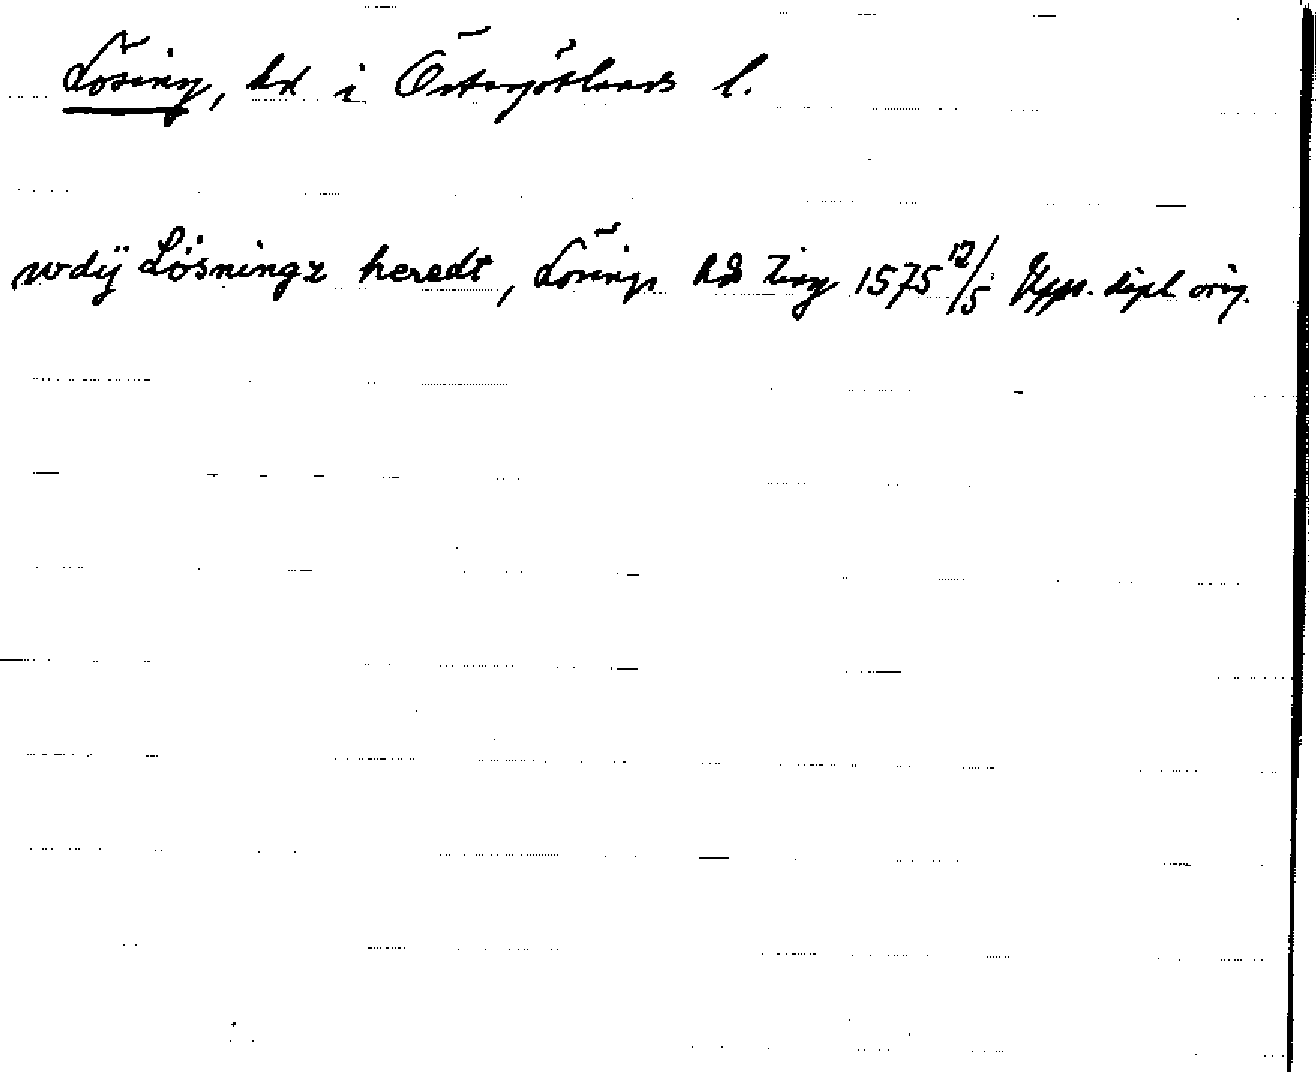 Lösing, hd i Östergötlands l.
wdij Lösningz heredt, Lösings hd Ting 1575 12/5 Upps. dipl orig.